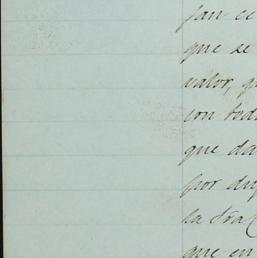 que se
valor, qu
con tod
que da
por du
la Sra
que en